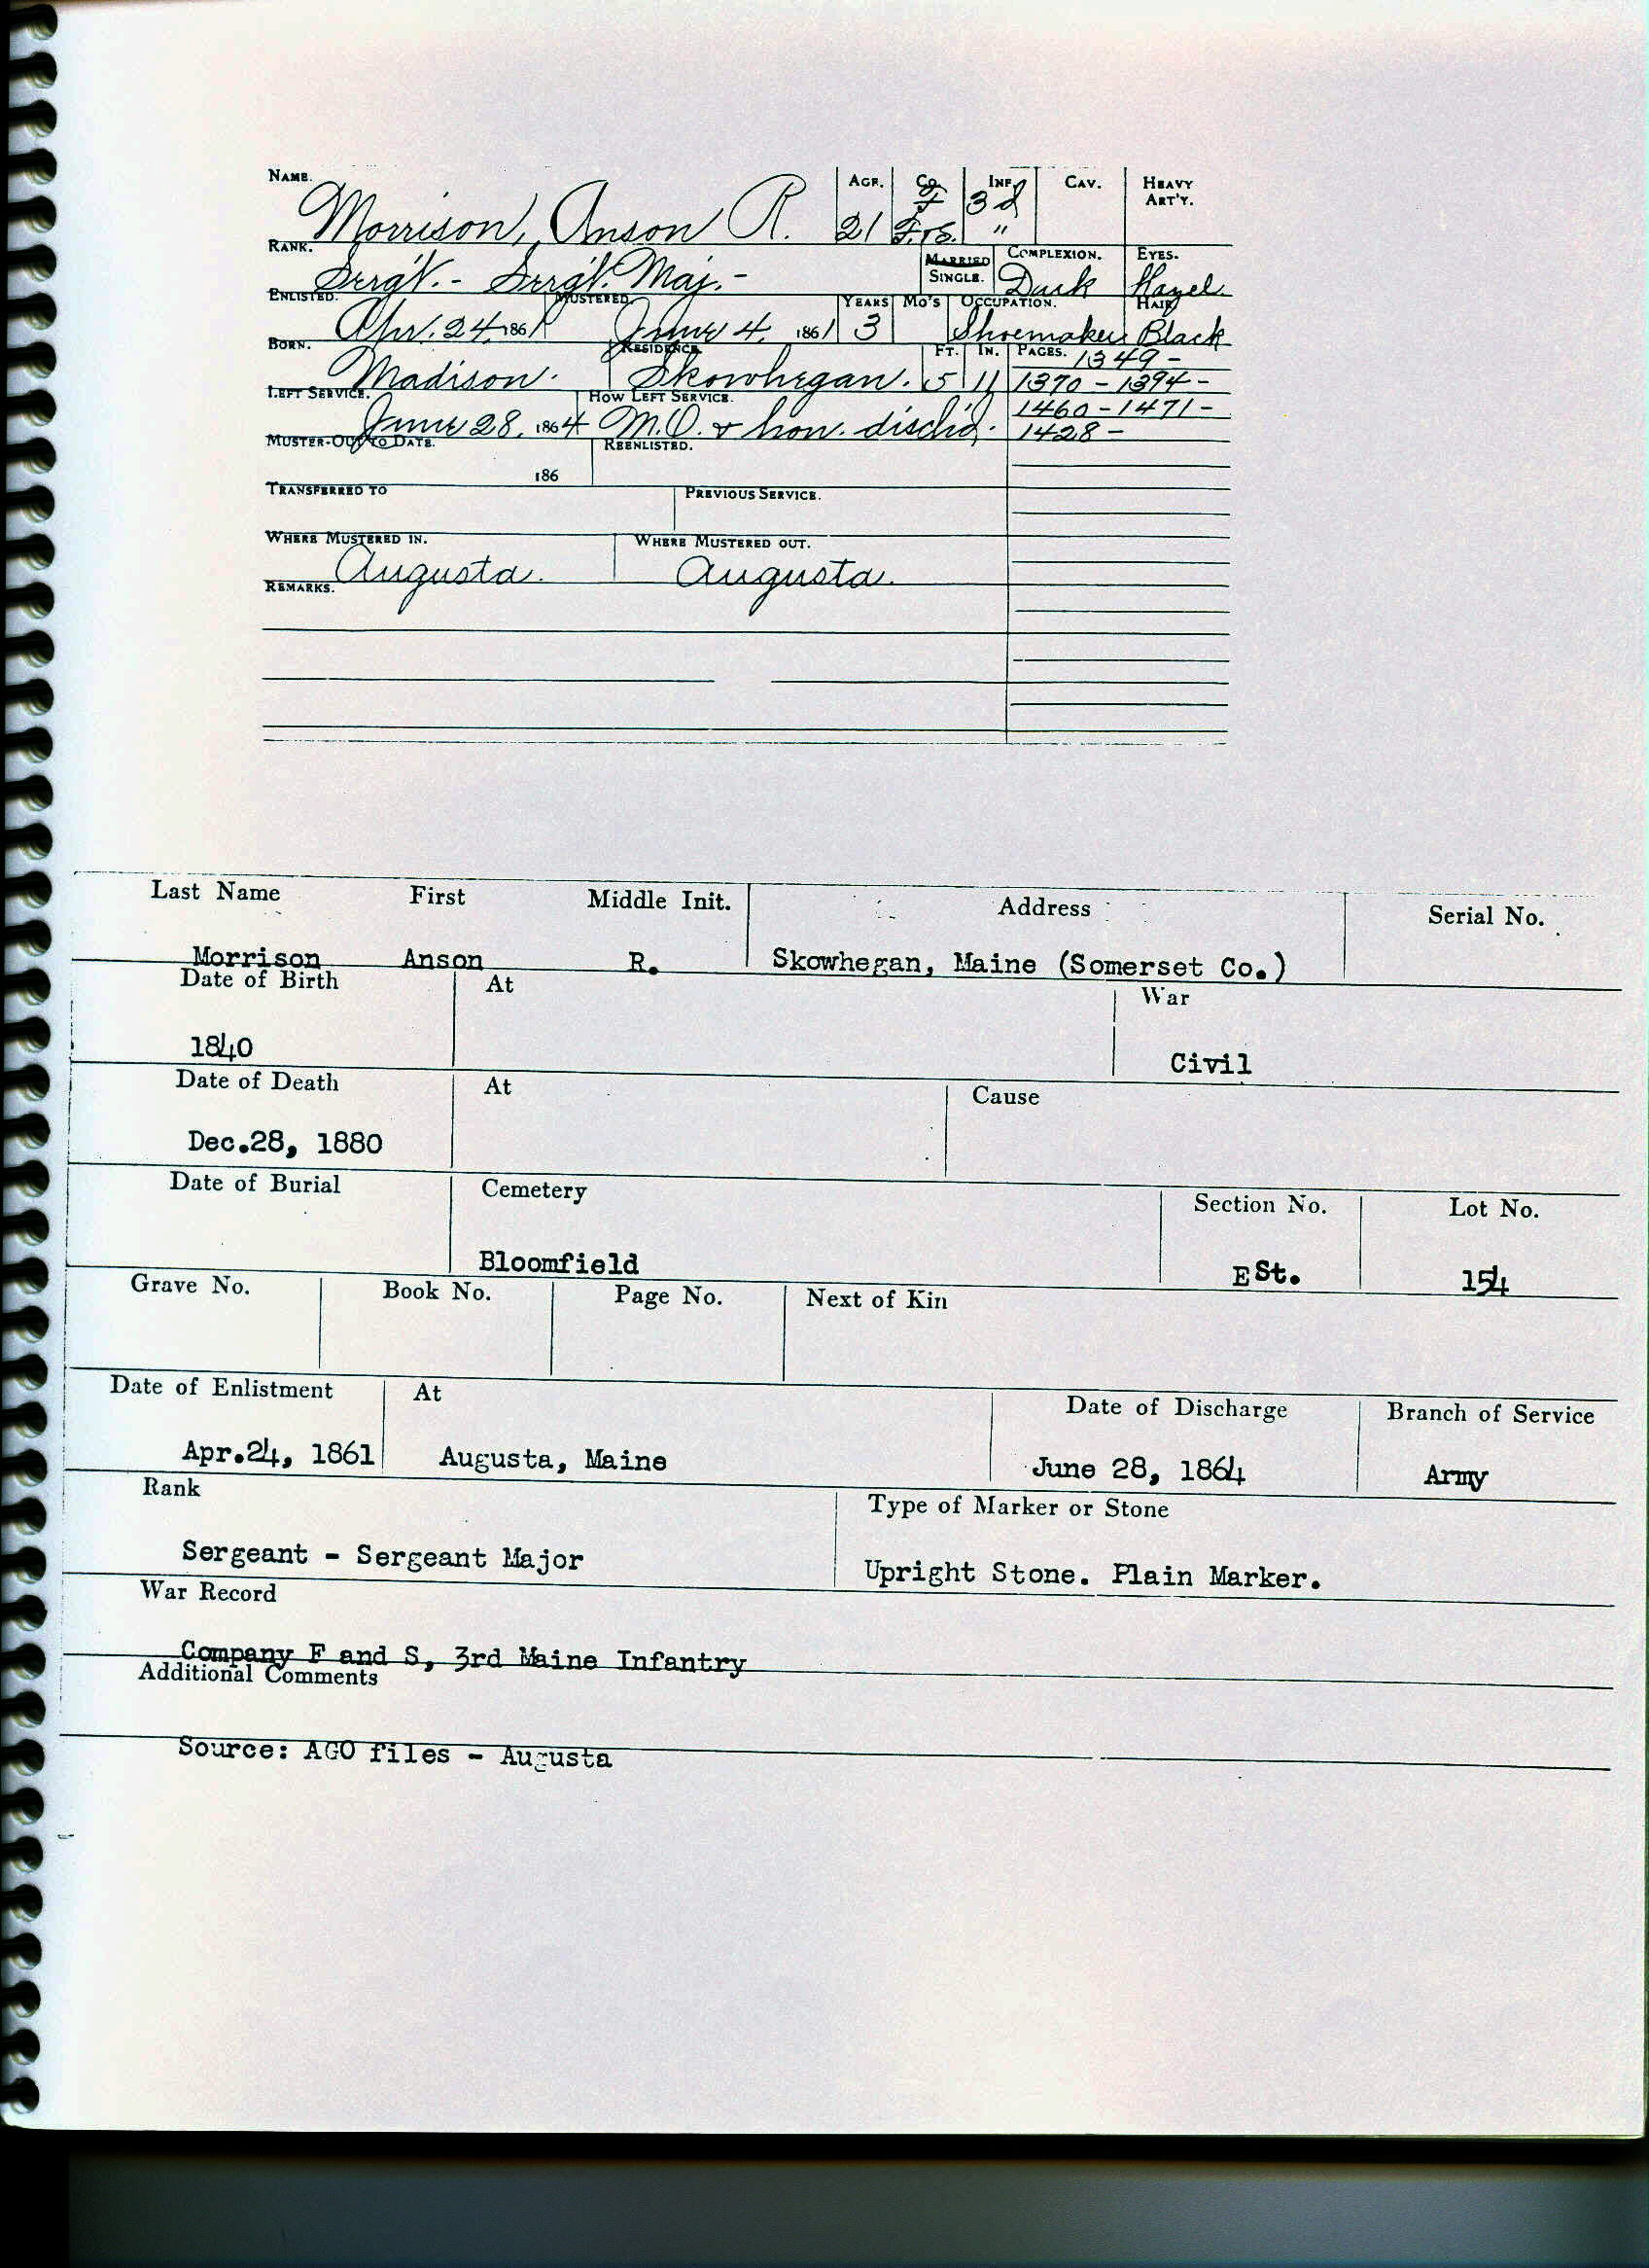 NAME. AGE. CO. INF. CAV. HEAVY ART'Y.
Morrison, Anson R. 21 F 3d
F.&S. "
RANK. MARRIED SINGLE. COMPLEXION. EYES.
Sergt. - Sergt. Maj. - Dark Hazel
ENLISTED. MUSTERED. YEARS MO'S OCCUPATION. HAIR
Apr. 24, 1861 June 4, 1861 3 Shoemaker Black
BORN. RESIDENCE FT. IN. PAGES. 1349-
Madison. Skowhegan. 5 11 1370-1394-
LEFT SERVICE. HOW LEFT SERVICE. 1460-1471-
June 28, 1864 M.O. & hon. disch'd. 1428-
MUSTER-OUT TO DATE. REENLISTED.
186
TRANSFERRED TO PREVIOUS SERVICE.
WHERE MUSTERED IN. WHERE MUSTERED OUT.
Augusta. Augusta.
REMARKS.
Last Name First Middle Init. Address Serial No.
Morrison Anson R. Skowhegan, Maine (Somerset Co.)
Date of Birth At War
1840 Civil
Date of Death At Cause
Dec.28, 1880
Date of Burial Cemetery Section No. Lot No.
Bloomfield E St. 154
Grave No. Book No. Page No. Next of Kin
Date of Enlistment At Date of Discharge Branch of Service
Apr.24, 1861 Augusta, Maine June 28, 1864 Army
Rank Type of Marker or Stone
Sergeant - Sergeant Major Upright Stone. Plain Marker.
War Record
Company F and S, 3rd Maine Infantry
Additional Comments
Source: AGO files - Augusta